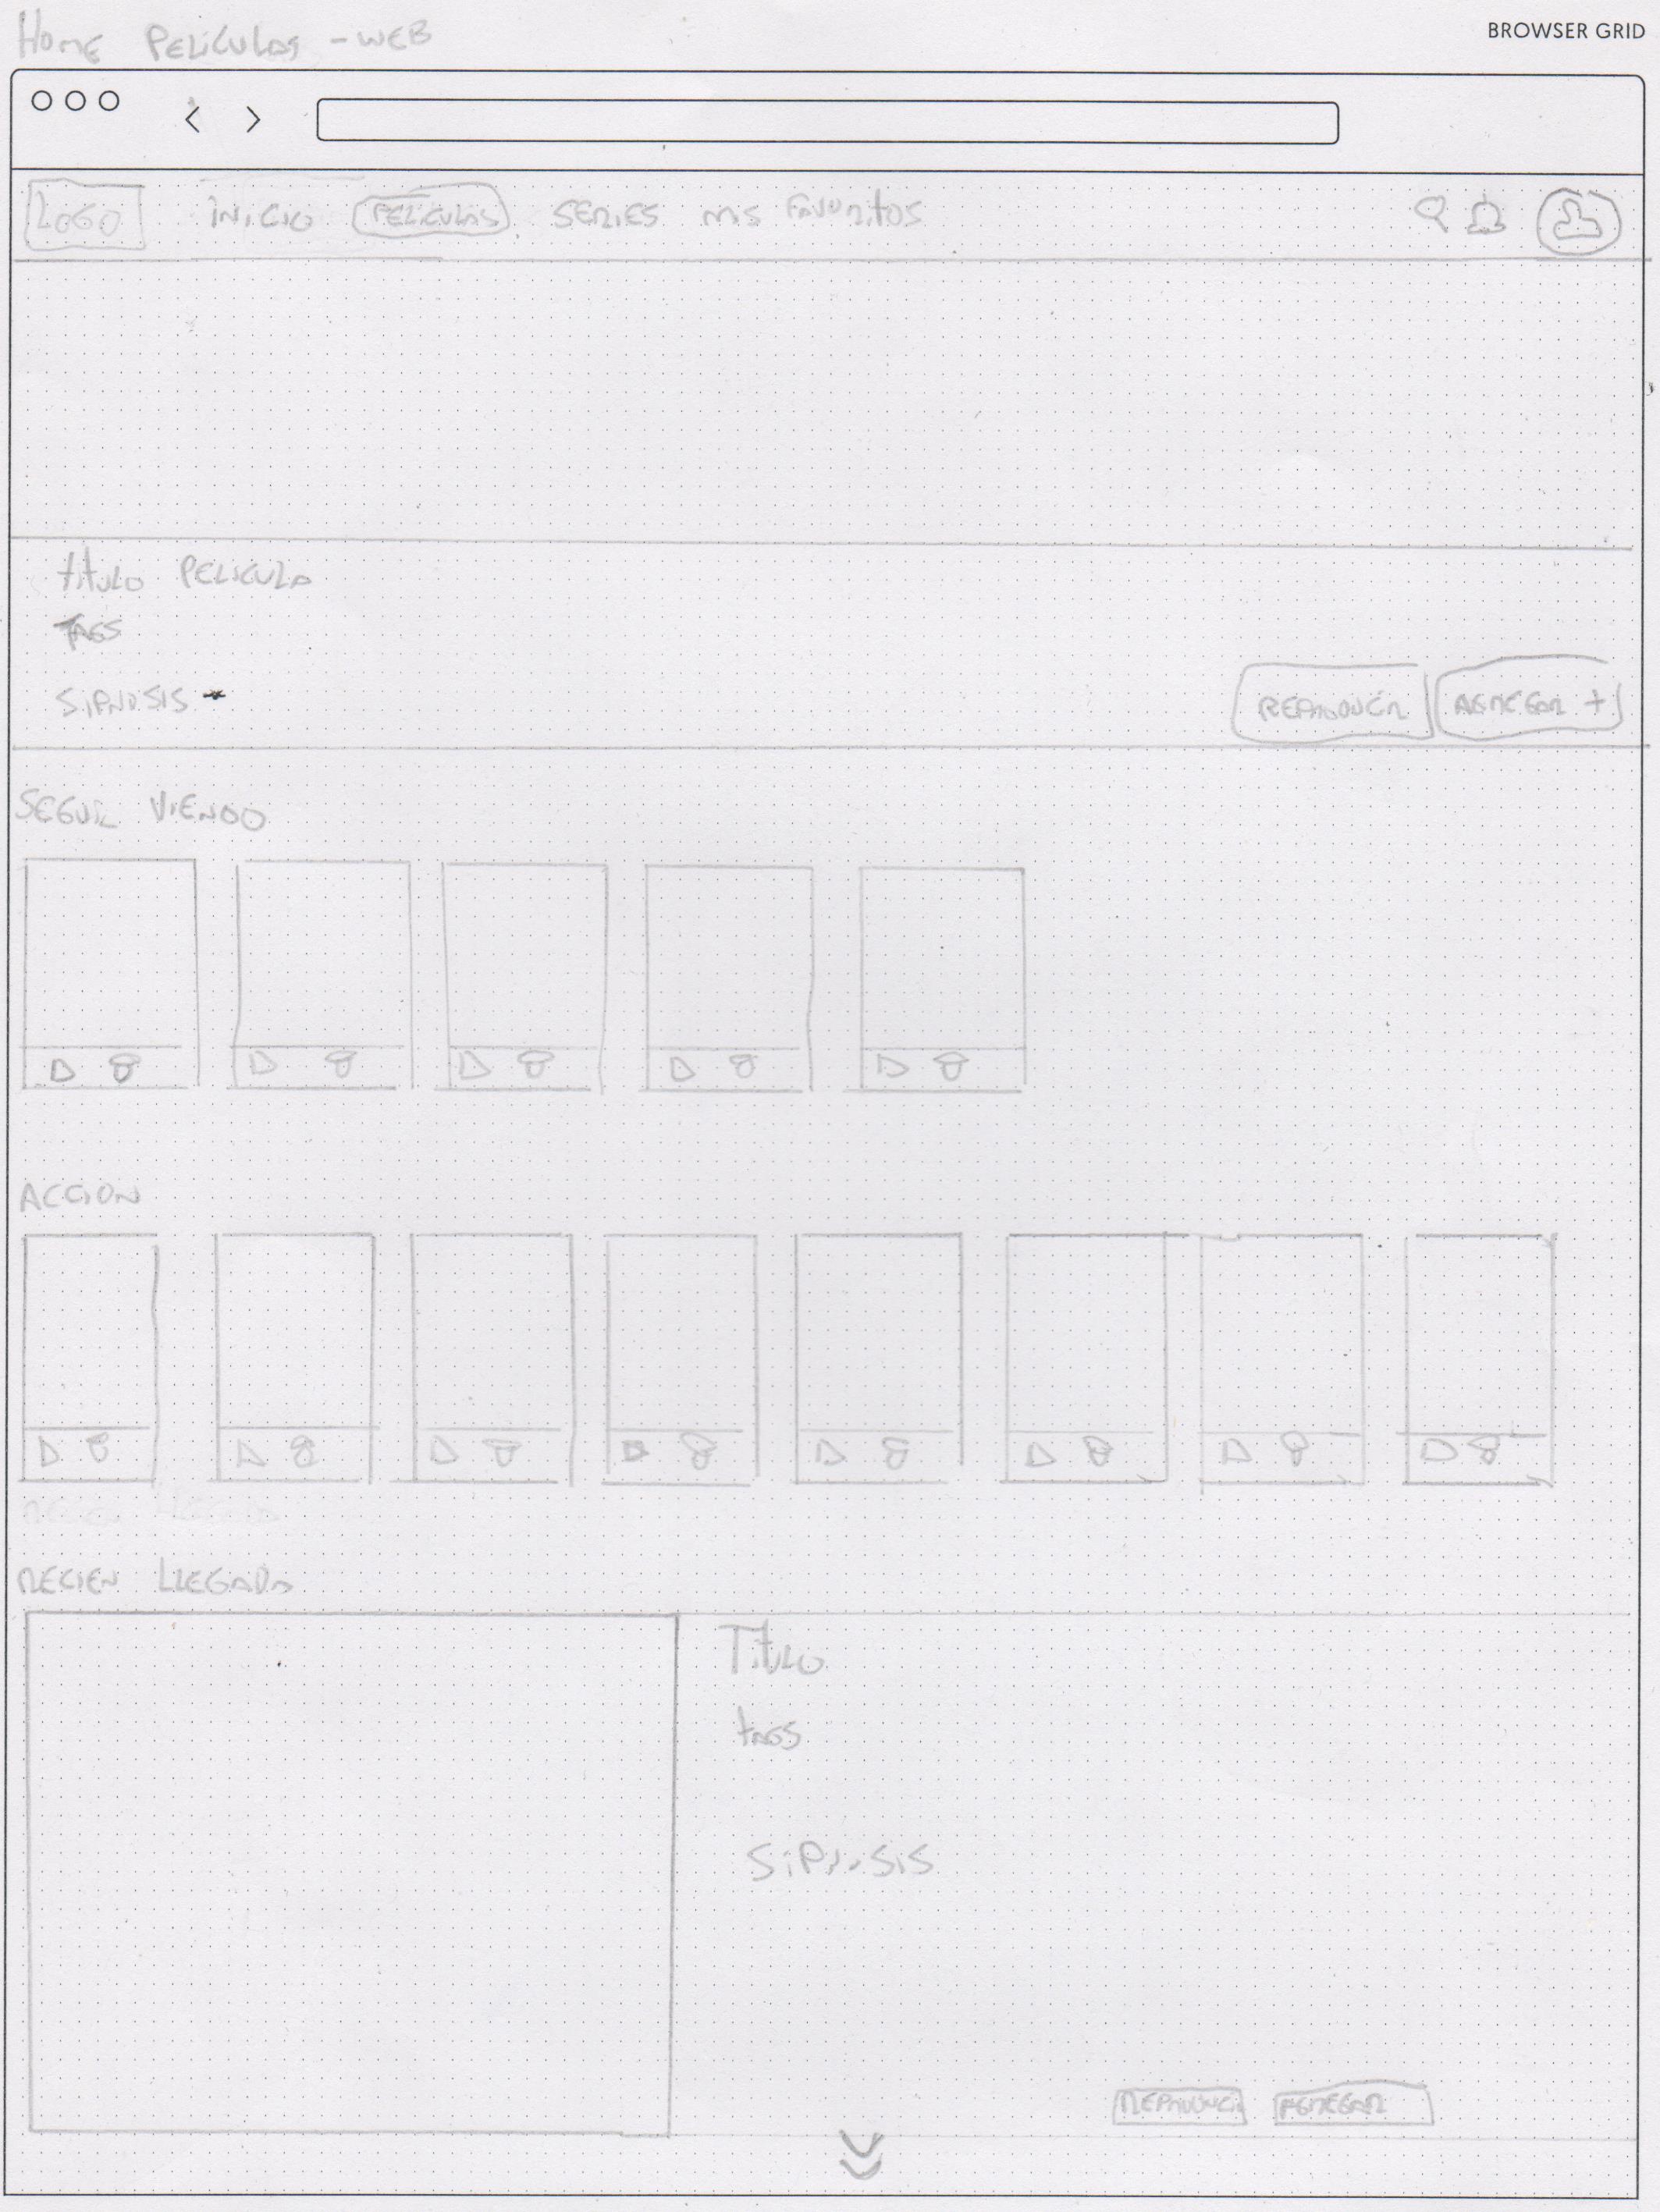 Home Peliculas - WEB
BROWSER GRID
LOGO INICIO PELICULAS SERIES mis FAVORITOS
titulo PELICULA
TAGS
SIPNOSIS
REPRODUCIR AGREGAR +
SEGUIR VIENDO
ACCION
RECIEN LLEGADA
Titulo
tags
SiPnosis
REPRODUCIR AGREGAR